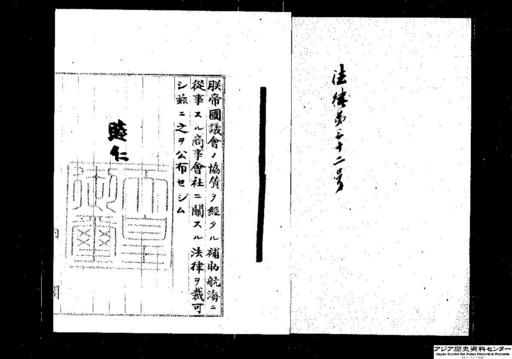 法律第三十二号
朕帝國議會ノ協賛ヲ經タル補助航海ニ
從事スル商事會社ニ關スル法律ヲ裁可
シ茲ニ之ヲ公布セシム
睦仁
天皇
御璽
内閣
アジア歴史資料センター
Japan Center for Asian Historical Records